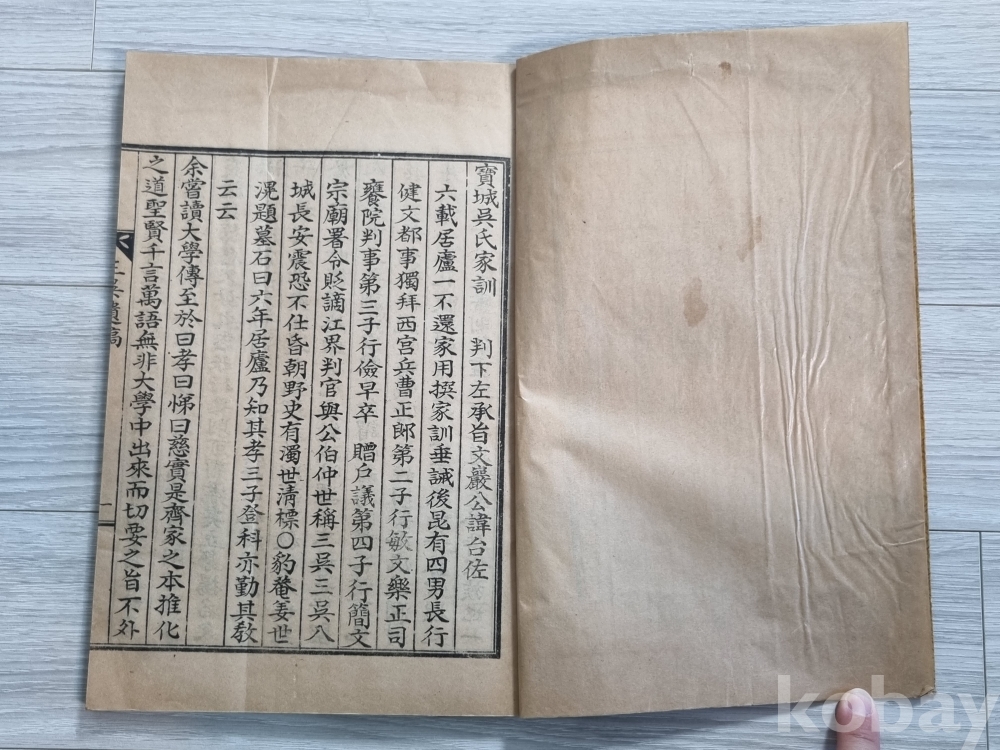 寶城吳氏家訓 判下左承旨文嚴公諱台佐
六載居廬一不還家用撰家訓垂誡後昆有四男長行
健文都事獨拜西宮兵曹正郎第二子行敏文樂正司
饔院判事第三子行儉早卒 贈戶議第四子行簡文
宗廟署令貶謫江界判官與公伯仲世稱三吳三吳八
城長安震恐不仕昏朝野史有濁世清標○豹菴姜世
滉題墓石曰六年居廬乃知其孝三子登科亦勤其教
云云
余嘗讀大學傳至於曰孝曰悌曰慈實是齊家之本推化
之道聖賢千言萬語無非大學中出來而切要之旨不外
三吳遺稿
一
kobay